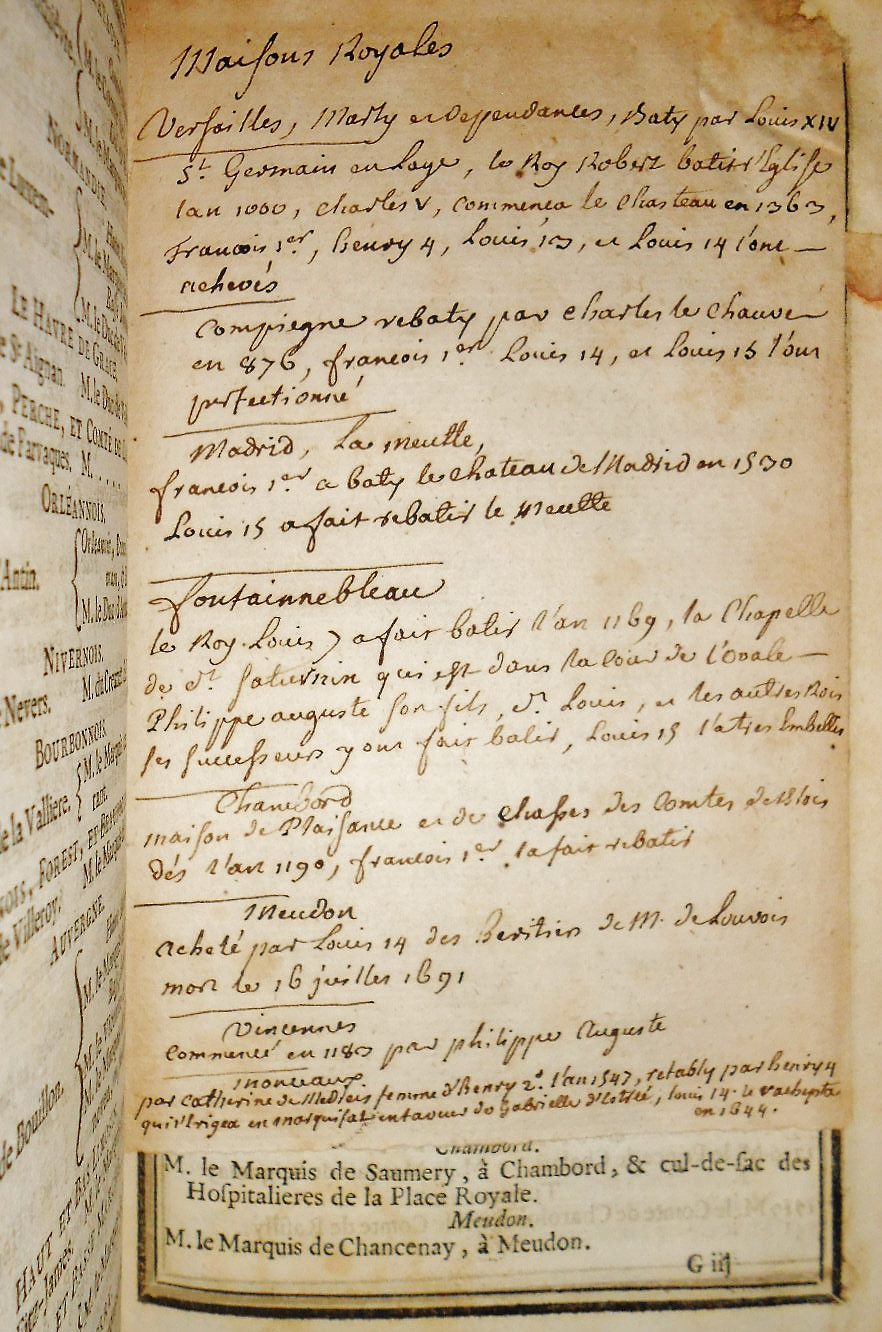 NORMANDIE.
LE HAVRE DE GRACE,
PERCHE, ET COMTÉ DE
de Farvaques. M. . . . . .
ORLÉANNOIS,
Antin.
M. le Duc d'
NIVERNOIS,
Nevers.
BOURBONNOIS
de la Valliere.
FOREST,
de Villeroy.
AUVERGNE
de Bouillon.
HAUT ET BAS LIMOUSIN
Maisons Royales
Versailles, Marly et dependances, Baty par Louis XIV
St. Germain en Laye, le Roy Robert batit l'Eglise
lan 1000, charles V, commenca le chasteau en 1363,
Francois 1er, henry 4, Louis 13, et Louis 14 l'ont
achevés
Compiegne rebaty par charles le chauve
en 876, francois 1er Louis 14, et Louis 15 l'ont
perfectionné
Madrid, La meutte,
francois 1er a baty le chateau de Madrid en 1530
Louis 15 a fait rebatir le Meutte
fontainnebleau
le Roy Louis 7 a fait batir l'an 1169, la Chapelle
de St. saturnin qui est dans la cour de l'ovale
Philippe auguste son fils, St. Louis, et les autres Rois
ses successeurs y ont fait batir, Louis 15 l'a tres Embelly
Chambord
maison de Plaisance et de chasses des Comtes de Blois
dés l'an 1190, francois 1er la fait rebatir
Meudon
acheté par Louis 14 des heritiers de M. de Louvois
mort le 16 juillet 1691
Vincennes
commencé en 1183 par philippe Auguste
monceaux
par Catherine de Medicis femme d'henry 2d. l'an 1547, retably par henry 4
qui l'erigea en marquisat en faveur de Gabrielle d'Estrée, louis 14 le rachepta
en 1644.
Chambord.
M. le Marquis de Saumery, à Chambord, & cul-de-sac des
Hospitalieres de la Place Royale.
Meudon.
M. le Marquis de Chancenay, à Meudon.
G iij